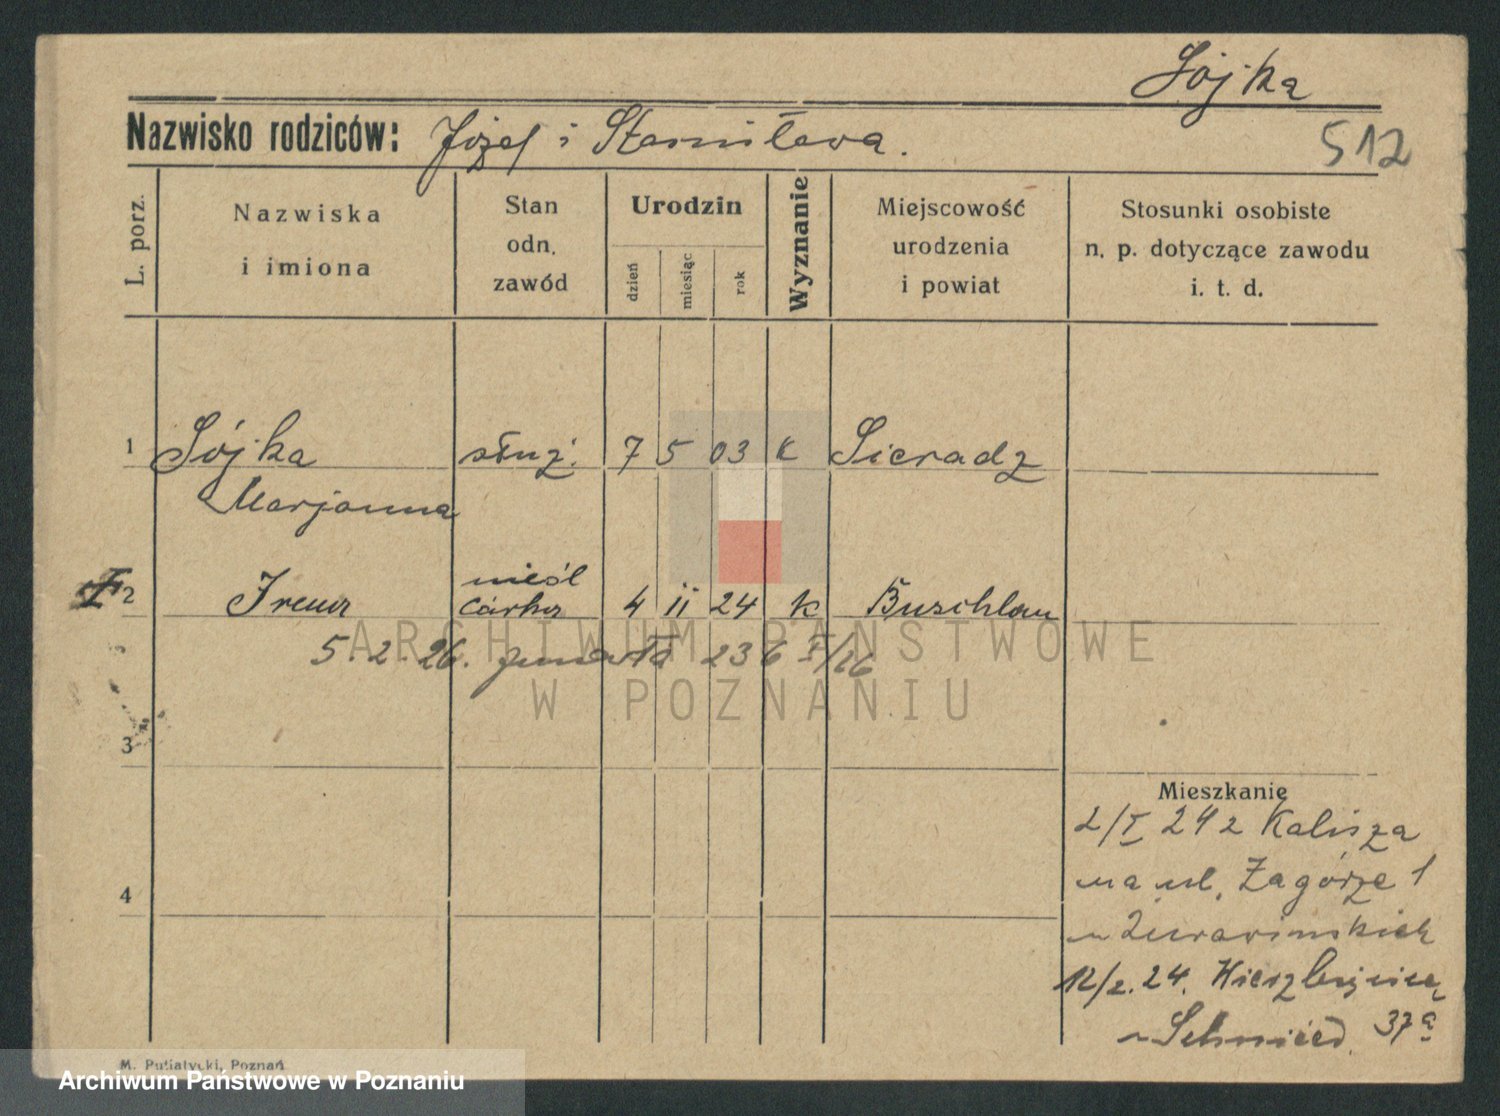 Sójka
Nazwisko rodziców: Józef i Stanisława.
512
L. porz.
Nazwiska
i imiona
Stan
odn.
zawód
Urodzin
dzień
miesiąc
rok
Wyznanie
Miejscowość
urodzenia
i powiat
Stosunki osobiste
n. p. dotyczące zawodu
i. t. d.
1 Sójka służ. 7 5 03 K Sieradz
Marjanna
nieśl
2 Irena córka 4 11 24 K
5.2.26. zmarła 236 /26
3
4
Mieszkanie
2/I 24 z Kalisza
na ul. Zagórze 1
12/2.24.
37a
M. Putiatycki, Poznań
ARCHIWUM PAŃSTWOWE
W POZNANIU
Archiwum Państwowe w Poznaniu